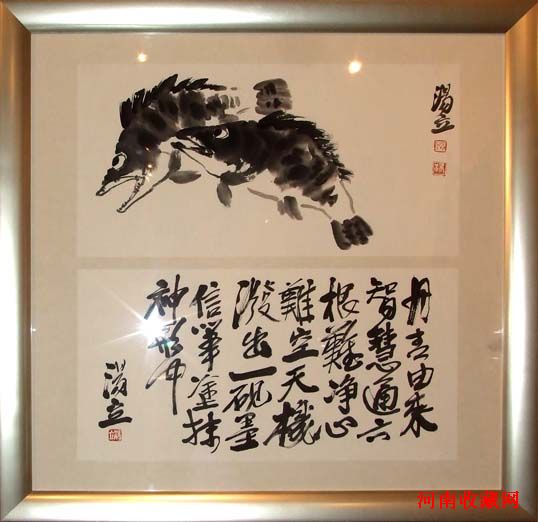 湯立
丹青由来
智慧通六
根難净心
難空天機
潑出一砚墨
信筆塗抹
神形中
湯立
河南收藏网